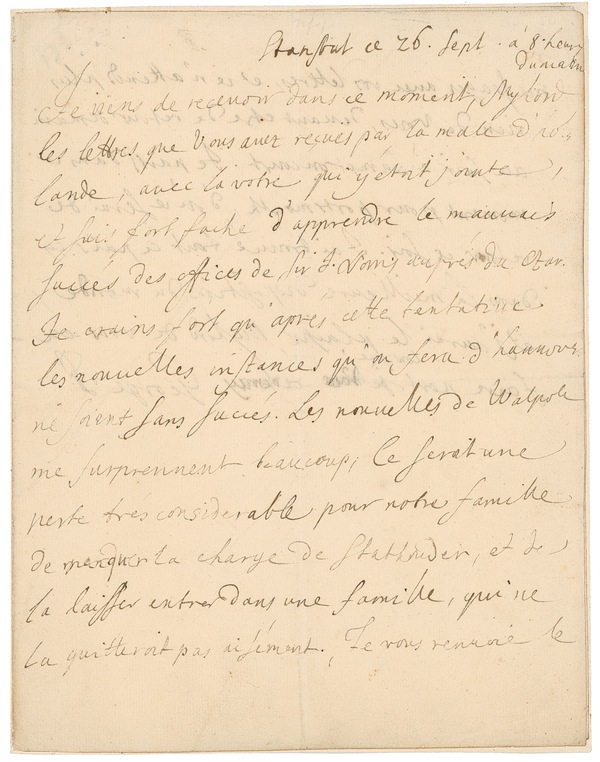 ce 26. Sept. à 8. heures
du matin
Je viens de recevoir dans ce moment, Mylord
les lettres que Vous aviez reçues par la male d'hol-
lande, avec la votre qui y etoit jointe,
et suis fort faché d'apprendre le mauvais
succes des offices de Sir J. Norris auprés du Czar.
Je crains fort qu'apres cette tentative
les nouvelles instances qu'on fera d'hannover
ne soient sans succés. Les nouvelles de Walpole
me surprennent beaucoup; Ce serait une
perte trés considerable pour notre famille
de manquer la charge de Stathouder, et de
la laisser entrer dans une famille, qui ne
la quitteroit pas aisément. Je vous renvoie le